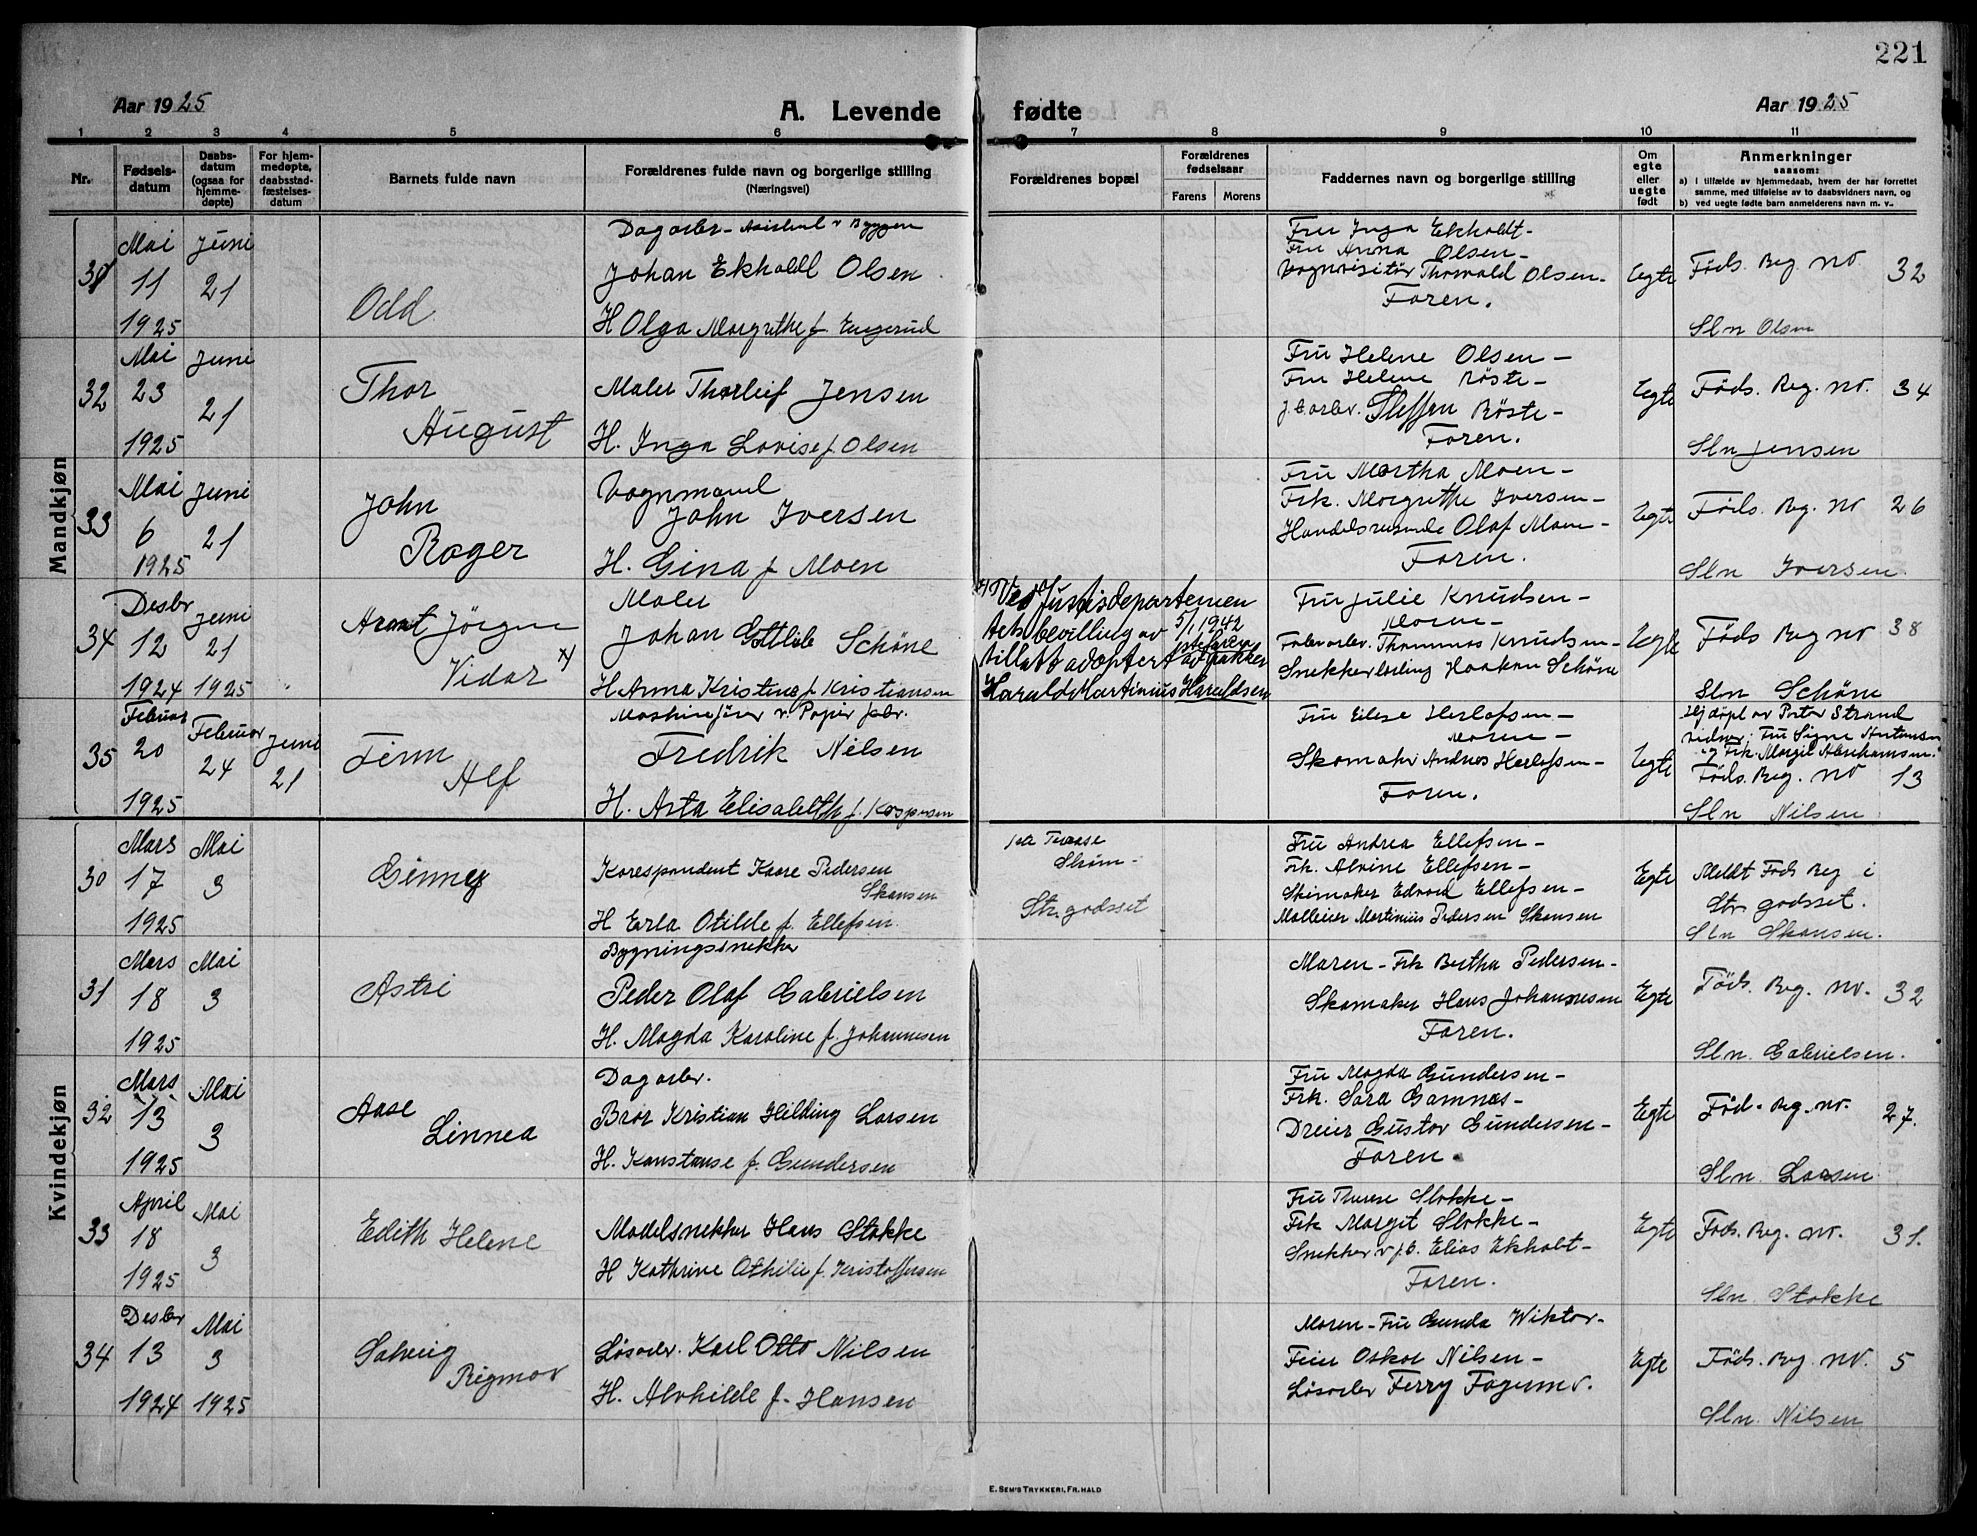 221
Aar 1925
A. Levende fødte
Aar 1925
1 2 3 4 5 6 7 8 9 10 11
Nr.
Fødsels-
datum
Daabs-
datum
(ogsaa for
hjemme-
døpte)
For hjem-
medøpte,
daabsstad-
fæstelses-
datum
Barnets fulde navn
Forældrenes fulde navn og borgerlige stilling
(Næringsvei)
Forældrenes bopæl
Forældrenes
fødselsaar
Farens Morens
Faddernes navn og borgerlige stilling
Om
egte
eller
uegte
født
Anmerkninger
saasom:
a) i tilfælde av hjemmedaab, hvem der har forrettet
samme, med tilføielse av to daabsvidners navn, og
b) ved uegte fødte barn anmelderens navn m. v.
Mandkjøn
31
Mai
11
1925
Juni
21
Odd
Dagarbr - Assistent v Byggen
Johan Ekholdt Olsen
H Olga Margrethe f. Engerud
Fru Inga Ekholdt-
Fru Anna Olsen-
Vognvisitør Thorvald Olsen-
Faren.
Egte
Føds. Reg no 32
Sln Olsen
32
Mai
23
1925
Juni
21
Thor
August
Maler Thorleif Jensen
H. Inga Lovise f. Olsen
Fru Helene Olsen -
Fru Helene Røste -
J.b.arbr. Steffen Røste -
Faren.
Egte
Føds. Reg. no. 34
Sln Jensen
33
Mai
6
1925
Juni
21
John
Roger
Vognmand
John Iversen
H. Gina f Moen
Fru Martha Moen -
Frk. Margrethe Iversen -
Handelsreisende Olaf Moen -
Faren.
Egte
Føds. Reg. no 26
Sln Iversen.
34
Desbr
12
1924
Juni
21
1925
Arent Jörgen
Vidar x)
Maler
Johan Gottlieb Schöne
H. Anna Kristine f Kristiansen
x) Ved Justisdepartemen
tets bevilling av 5/1 1942
tillatt adoptert av pakker
Harald Martinius Haraldsen
Fru Julie Knudsen -
Moren -
Fabr.arbr. Thommas Knudsen -
Snekkerlærling Haakon Schöne
Egte
Føds Reg no 38
Sln Schöne
35
Februar
20
1925
Februar
24
Juni
21
Finn
Alf
Maskinfører v. Papir fabr.
Fredrik Nilsen
H. Asta Elisabeth f. Kaspersen
Fru Elise Herlofsen -
Moren -
Skomaker Andreas Herlofsen -
Faren.
Egte
Hjdøpt av Pastor Strand
vidner: Fru Signe Antonsen
og Frk. Margit Abrahamsen.
Føds. Reg. no 13
Sln Nilsen
Kvindekjøn
30
Mars
17
1925
Mai
3
Ginney
Korespondent Kaare Pedersen
Skansen
H Erla Otilde f. Ellefsen.
Strøm -
Str. godsset
Fru Andrea Ellefsen -
Frk. Alvine Ellefsen -
Skomaker Edvard Ellefsen -
Mølleier Martinius Pedersen Skansen
Egte
Meldt Føds Reg i
Str godsset.
Sln Skansen.
31
Mars
18
1925
Mai
3
Astri
Bygningssnekker
Peder Olaf Gabrielsen
H. Magda Karoline f. Johannesen
Moren - Frk Bertha Pedersen -
Skomaker Hans Johannesen
Faren.
Egte
Føds. Reg. no. 32
Sln. Gabrielsen.
32
Mars
13
1925
Mai
3
Aase
Linnea
Dagarbr.
Bror Kristian Hilding Larsen
H. Konstanse f. Gundersen
Fru Magda Gundersen -
Frk. Sara Gamnæs -
Dreier Gustav Gundersen -
Faren.
Egte
Fød. Reg. no. 27.
Sln. Larsen
33
April
18
1925
Mai
3
Edith Helene
Modelsnekker Hans Stokke
H Kathrine Othilie f. Kristoffersen
Fru Therese Stokke -
Frk Margit Stokke -
Snekker v j.b. Elias Ekholt -
Faren.
Egte
Føds. Reg. no. 31.
Sln. Stokke
34
Desbr
13
1924
Mai
3
1925
Solveig
Rigmor
Løsarbr. Karl Otto Nilsen
H. Alvhilde f. Hansen
Moren - Fru Gunda Wiktor -
Feier Oskar Nilsen -
Løsarbr Ferry Fagermo.
Egte
Føds. Reg. no. 5
Sln. Nilsen
E. SEM'S TRYKKERI, FR. HALD